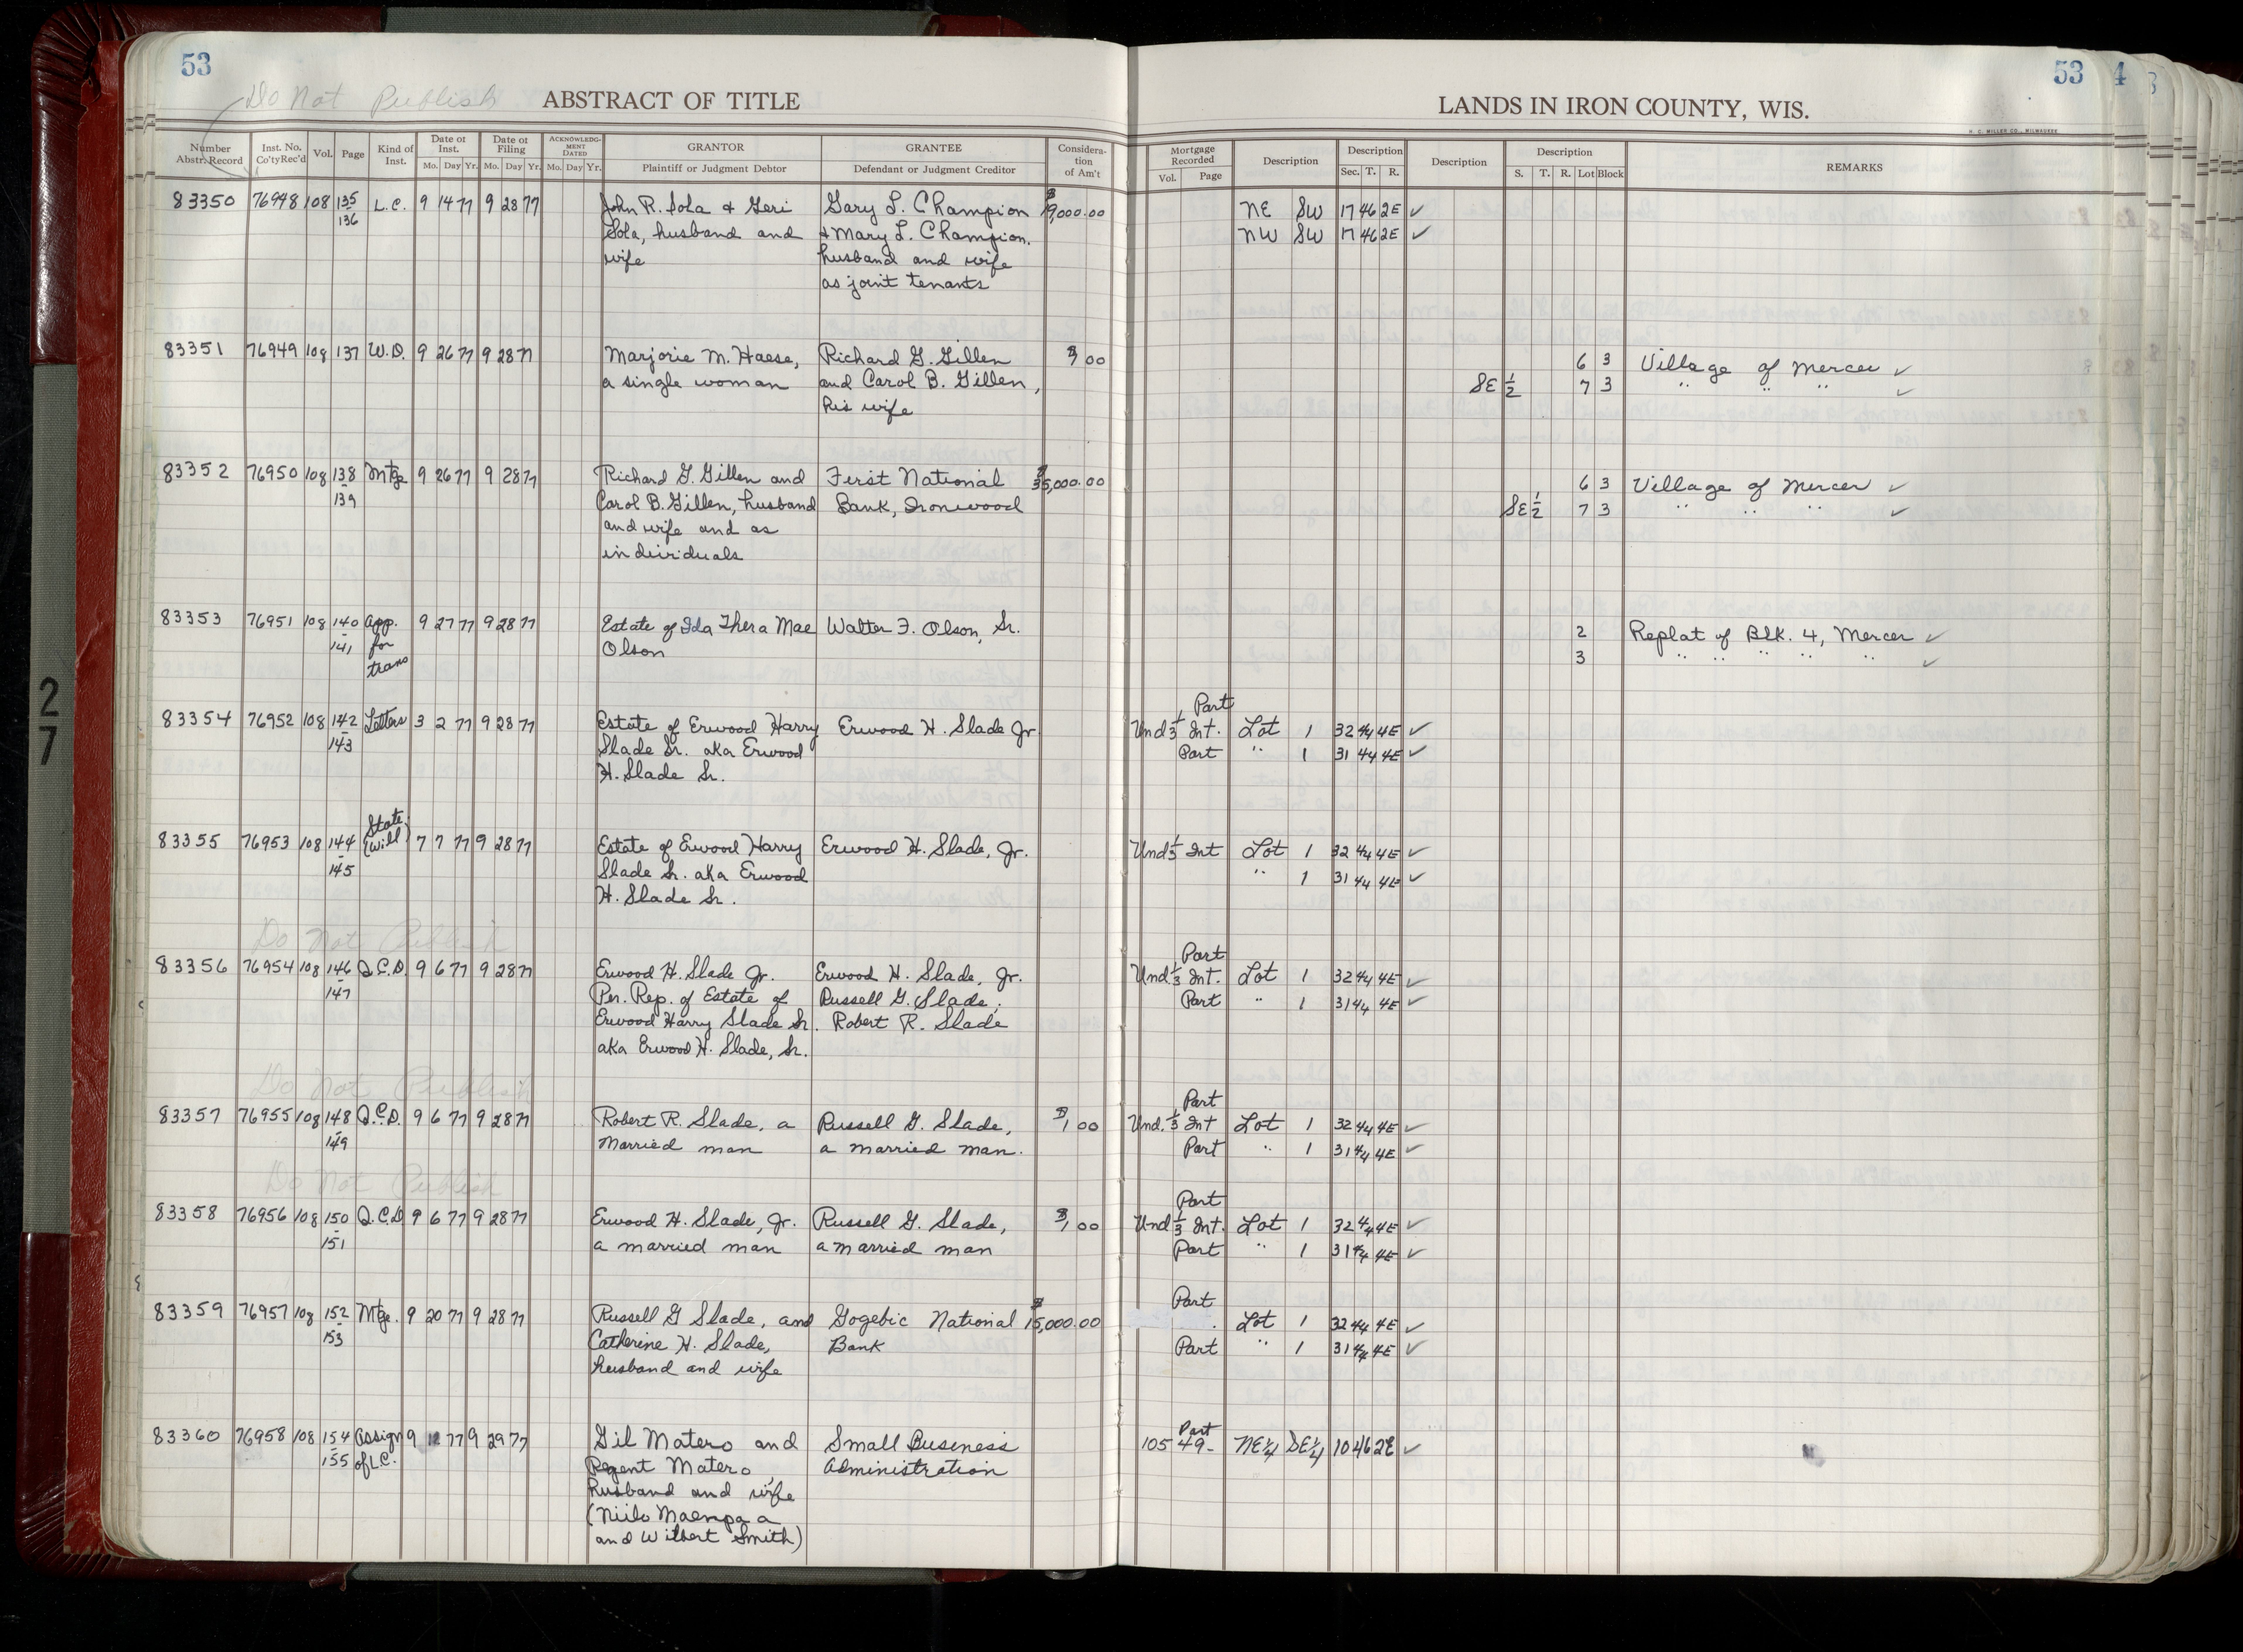 53
Do Not Publish
ABSTRACT OF TITLE
Number Abstr. Record | Inst. No. Co'ty Rec'd | Vol. | Page | Kind of Inst. | Date of Inst. Mo. Day Yr. | Date of Filing Mo. Day Yr. | ACKNOWLEDGMENT DATED Mo. Day Yr. | GRANTOR Plaintiff or Judgment Debtor | GRANTEE Defendant or Judgment Creditor | Consideration of Am't
53
4
LANDS IN IRON COUNTY, WIS.
H. C. MILLER CO., MILWAUKEE
Mortgage Recorded Vol. Page | Description | Description Sec. T. R. | Description | Description S. T. R. Lot Block | REMARKS
83350 76948 108 135-136 L.C. 9 14 77 9 28 77 John R. Sola & Geri Gary L. Champion $19,000.00 NE SW 17 46 2E ✓
Sola, husband and & Mary L. Champion, NW SW 17 46 2E ✓
wife husband and wife
as joint tenants
83351 76949 108 137 W.D. 9 26 77 9 28 77 Marjorie M. Haese, Richard G. Gillen $1 00 6 3 Village of Mercer ✓
a single woman and Carol B. Gillen, SE 1/2 7 3 " " " ✓
his wife
83352 76950 108 138-139 Mtge 9 26 77 9 28 77 Richard G. Gillen and First National $35,000.00 6 3 Village of Mercer ✓
Carol B. Gillen, husband Bank, Ironwood SE 1/2 7 3 " " " ✓
and wife and as
individuals
83353 76951 108 140-141 App. for trans 9 27 77 9 28 77 Estate of Ida Thera Mae Walter F. Olson, Sr. 2 Replat of Blk. 4, Mercer ✓
Olson 3 " " " " " ✓
Part
83354 76952 108 142-143 Letters 3 2 77 9 28 77 Estate of Erwood Harry Erwood H. Slade Jr Und 1/3 Int. Lot 1 32 44 4E ✓
Slade Sr. aka Erwood Part " 1 31 44 4E ✓
H. Slade Sr.
83355 76953 108 144-145 State. (Will) 7 7 77 9 28 77 Estate of Erwood Harry Erwood H. Slade, Jr. Und 1/3 Int Lot 1 32 44 4E ✓
Slade Sr. aka Erwood " 1 31 44 4E ✓
H. Slade Sr.
Do Not Publish
Part
83356 76954 108 146-147 Q.C.D. 9 6 77 9 28 77 Erwood H. Slade Jr. Erwood H. Slade, Jr. Und 1/3 Int. Lot 1 32 44 4E ✓
Per. Rep. of Estate of Russell G. Slade, Part " 1 31 44 4E ✓
Erwood Harry Slade Sr. Robert R. Slade
aka Erwood H. Slade, Sr.
Do Not Publish
Part
83357 76955 108 148-149 Q.C.D. 9 6 77 9 28 77 Robert R. Slade, a Russell G. Slade, $1 00 Und. 1/3 Int Lot 1 32 44 4E ✓
Married man a married man. Part " 1 31 44 4E ✓
Do Not Publish
Part
83358 76956 108 150-151 Q.C.D 9 6 77 9 28 77 Erwood H. Slade, Jr. Russell G. Slade, $1 00 Und 1/3 Int. Lot 1 32 44 4E ✓
a married man a married man Part " 1 31 44 4E ✓
Part
83359 76957 108 152-153 Mtge. 9 20 77 9 28 77 Russell G Slade, and Gogebic National $15,000.00 Lot 1 32 44 4E ✓
Catherine H. Slade, Bank Part " 1 31 44 4E ✓
husband and wife
Part
83360 76958 108 154-155 Assign of L.C. 9 12 77 9 29 77 Gil Matero and Small Business 105 49- NE¼ SE¼ 10 46 2E ✓
Regent Matero, Administration
husband and wife
(Niilo Maenpaa
and Wilbert Smith)
27